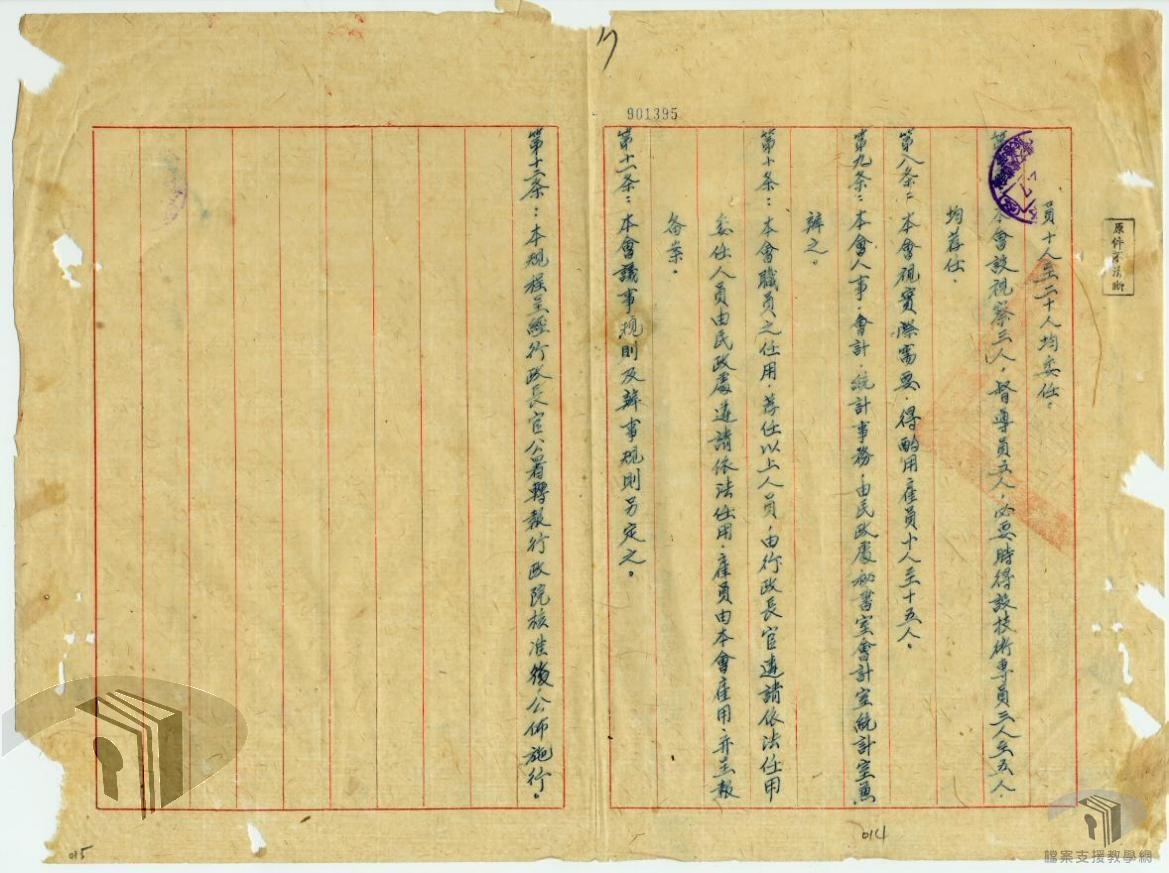 901395
原件不清晰
員十人至二十人均委任。
第 本會設視察三人，督導員五人，必要時得設技術專員三人至五人，
均荐任．
第八条：本會視實際需要，得酌用雇員十人至十五人。
第九条：本會人事．會計．統計事務，由民政處秘書室會計室統計室兼
辦之。
第十条：本會職員之任用，荐任以上人員，由行政長官遴請依法任用
委任人員由民政處遴請依法任用，雇員由本會雇用，并呈報
备案．
第十一条：本會議事規則及辦事規則另定之。
第十二条：本規程呈經行政長官公署轉報行政院核准後，公佈施行。
014
015
檔案支援教學網